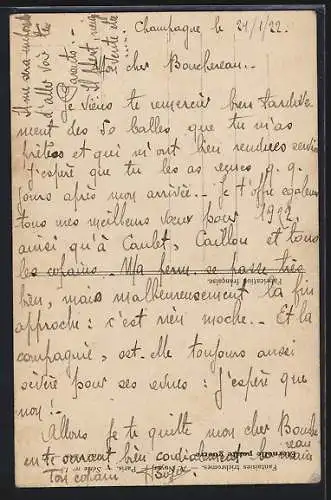 Champagne le 21/1/22.
cher Bouchereau...
Je viens te remercier bien tardive
ment des 50 balles que tu m'as
prêtées et qui m'ont bien rendues service
J'espère que tu les as reçues q.q.
jours après mon arrivée... Je t'offre également
tous mes meilleurs vœux pour 1922
ainsi qu'à Caulet, Caillou et tous
les copains. Ma perm. se passe très
bien, mais malheureusement la fin
approche : c'est rien moche.. Et la
compagnie, est-elle toujours aussi
sévère pour ses élèves : j'espère que
non!
Allons je te quitte mon cher Bouche
en te serrant bien cordialement la main
ton copain
Il me sera
d'aller voir tes
Parents.
Il
Fabrication française.
Fantaisies Trichromes.
Paris